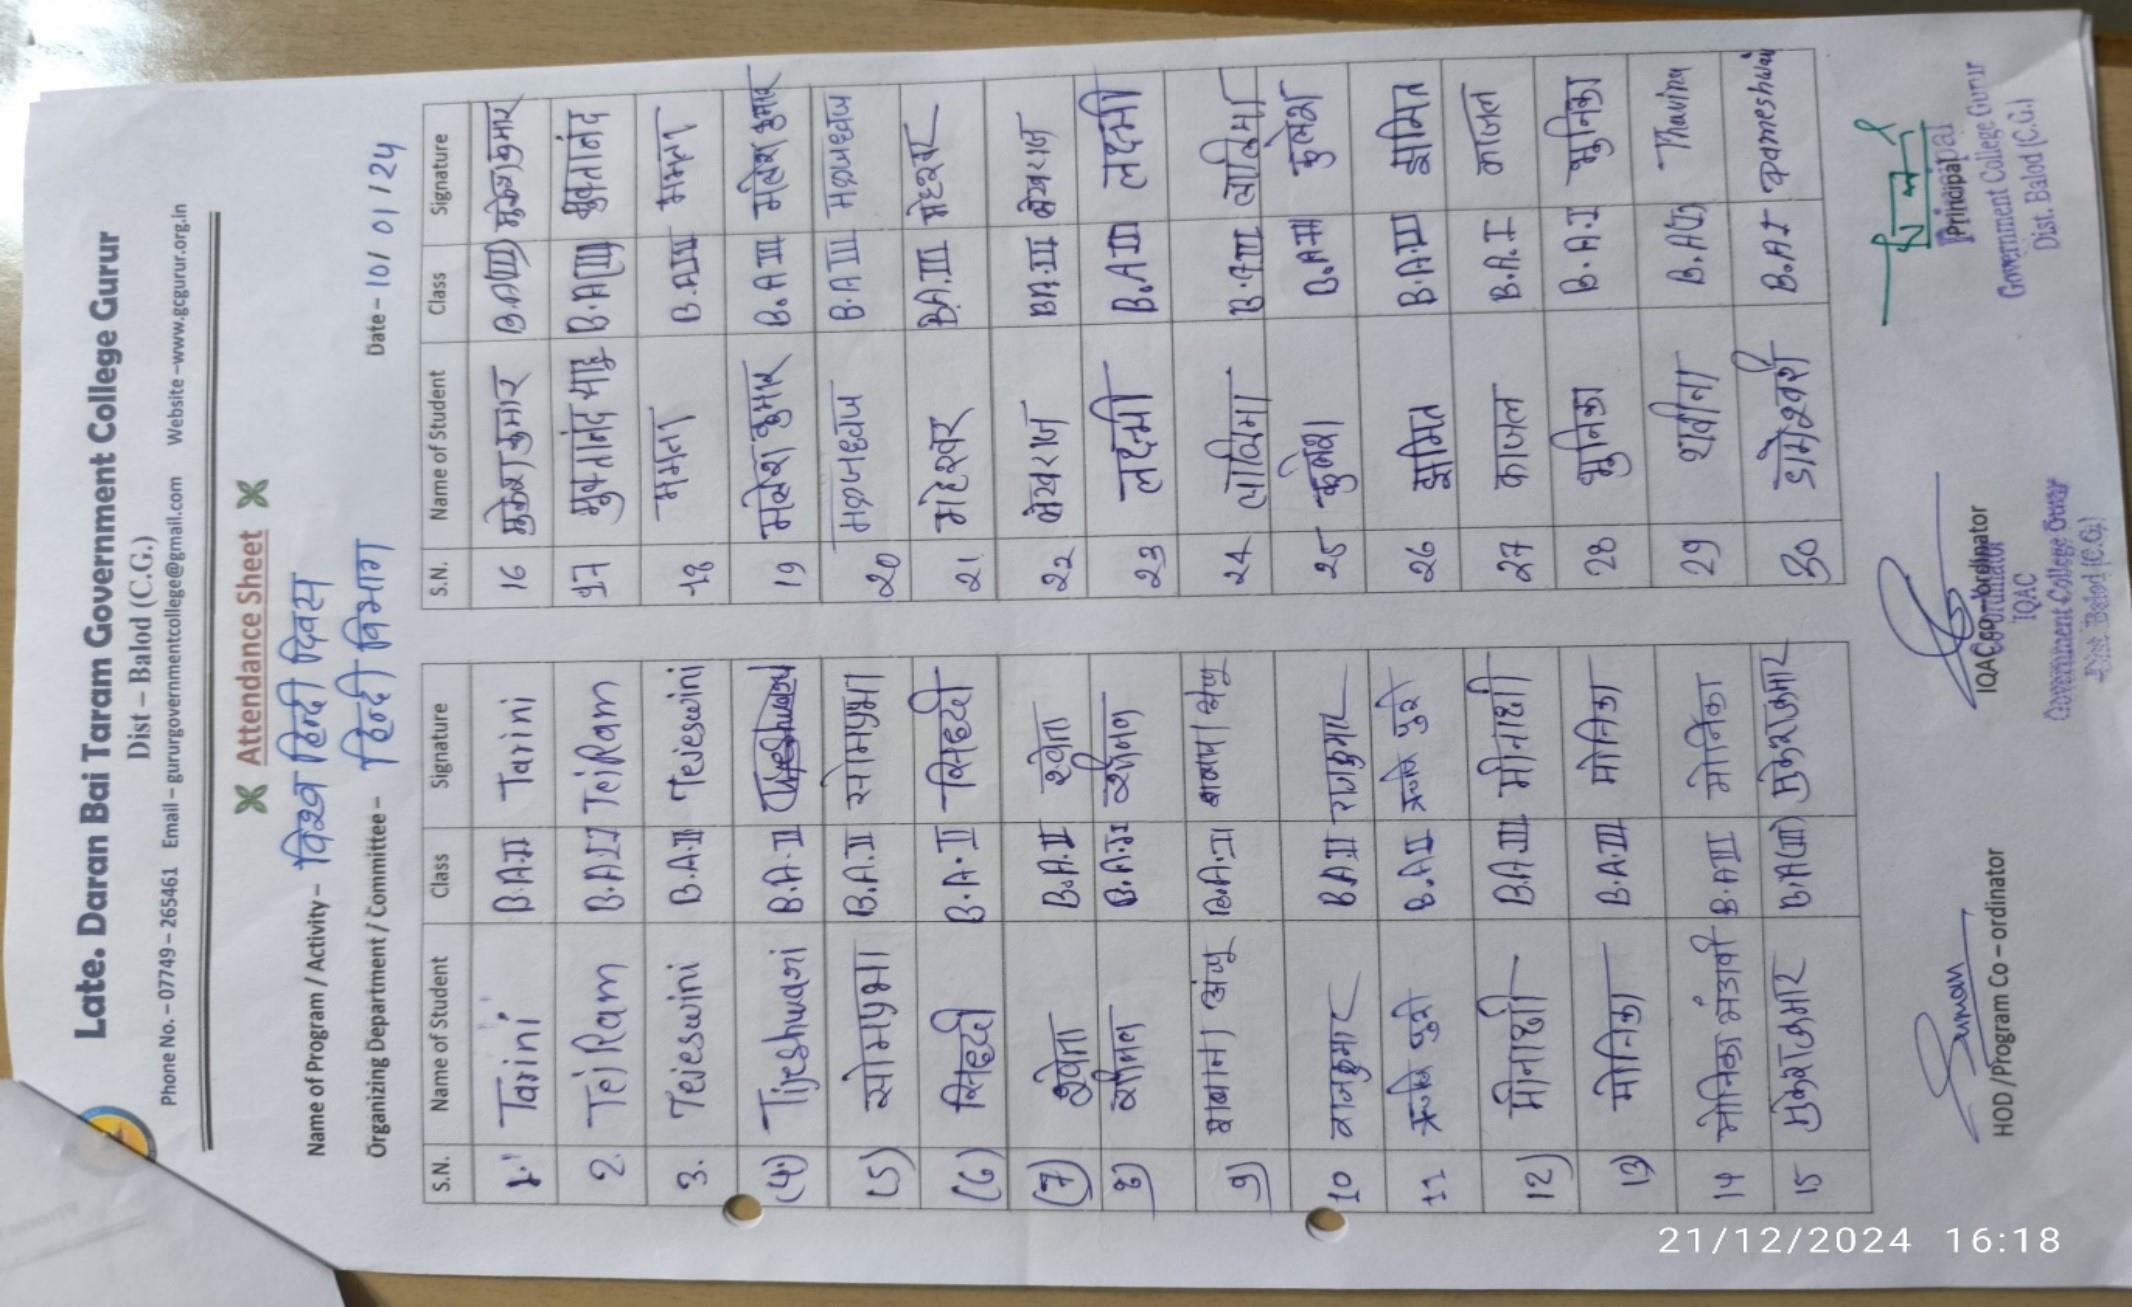 Late. Daran Bai Taram Government College Gurur
Dist – Balod (C.G.)
Phone No. – 07749 – 265461 Email – gururgovernmentcollege@gmail.com Website –www.gcgurur.org.in
Attendance Sheet
Name of Program / Activity – विश्व हिन्दी दिवस
Organizing Department / Committee – हिन्दी विभाग Date – 10/01/24
S.N. Name of Student Class Signature
1. Tarini B.A.II Tarini
2. TejRam B.A.II TejRam
3. Tejeswini B.A.II Tejeswini
(4) Tijeshwani B.A.II
(5) सोमप्रभा B.A.II सोमप्रभा
(6) B.A.II
(7) श्वेता B.A.II श्वेता
8) B.A.II
9) शबाना अंजू B.A.II शबाना अंजू
10 राजकुमार B.A.II राजकुमार
11 B.A.II
12) मीनाक्षी B.A.III मीनाक्षी
13) मोनिका B.A.III मोनिका
14 मोनिका भंडावी B.A.III मोनिका
15 मुकेश कुमार B.A(III) मुकेश कुमार
S.N. Name of Student Class Signature
16 मुकेश कुमार B.A(III) मुकेश कुमार
17 मुक्तानंद साहू B.A(III) मुक्तानंद
18 ममता B.A.III ममता
19 महेश कुमार B.A III महेश कुमार
20 मकरध्वज B.A III मकरध्वज
21 महेश्वर B.A.III महेश्वर
22 B.A.III
23 लक्ष्मी B.A III लक्ष्मी
24 B.A III
25 B.A III
26 B.A.III
27 काजल B.A.I काजल
28 भुनिका B.A.I भुनिका
29 B.A(I)
30 डामेश्वरी B.A I Dameshwari
Suman
HOD /Program Co – ordinator
IQAC co–ordinator
Co-ordinator
IQAC
Government College Gurur
Dist. Balod (C.G.)
Principal
Principal
Government College Gurur
Dist. Balod (C.G.)
21/12/2024 16:18